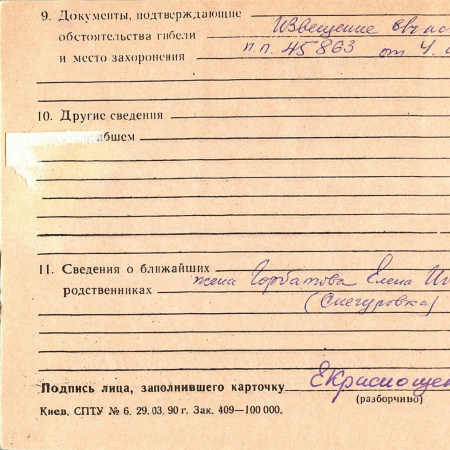 9. Документы, подтверждающие
обстоятельства гибели Извещение
и место захоронения п.п. 45863 от 4.
10. Другие сведения
ибшем
11. Сведения о ближайших
родственниках жена Горбатова Елена
(Снегуровка)
Подпись лица, заполнившего карточку ЕКраснощек
(разборчиво)
Киев. СПТУ № 6. 29.03.90 г. Зак. 409—100 000.